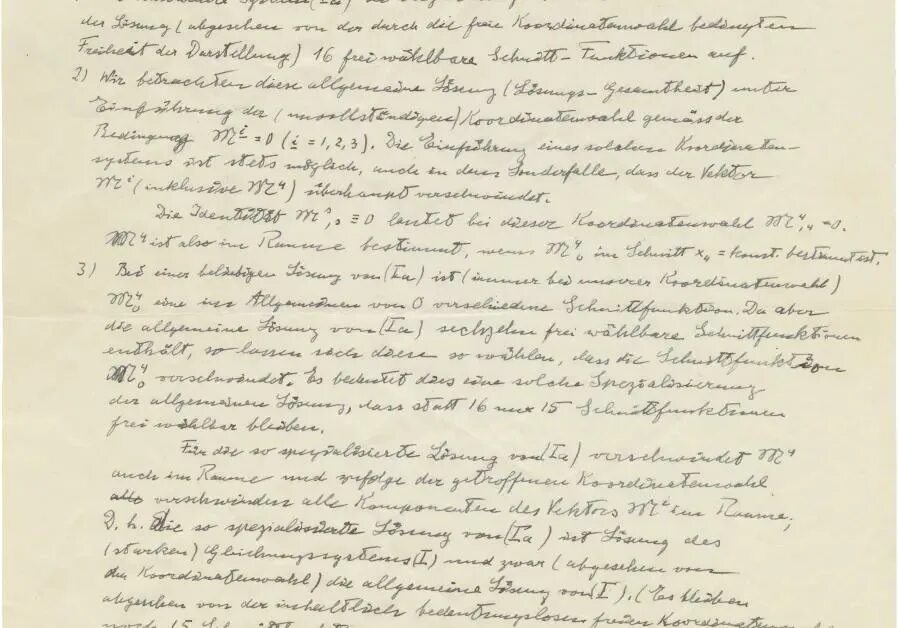 der Lösung (abgesehen von der durch die freie Koordinatenwahl bedingten
Freiheit der Darstellung) 16 frei wählbare Schnitt-Funktionen auf.
2) Wir betrachten diese allgemeine Lösung (Lösungs-Gesamtheit) unter
Einführung der (unvollständigen) Koordinatenwahl gemäss der
Bedingung 𝔐ⁱ = 0 (i = 1, 2, 3). Die Einführung eines solchen Koordinaten-
systems ist stets möglich, auch in dem Sonderfalle, dass der Vektor
𝔐ⁱ (inklusive 𝔐⁴) überhaupt verschwindet.
Die Identität 𝔐ˢ,ₛ ≡ 0 lautet bei dieser Koordinatenwahl 𝔐⁴,₄ = 0.
𝔐⁴ ist also im Raume bestimmt, wenn 𝔐⁴₀ im Schnitt x₄ = konst. bestimmt ist.
3) Bei einer beliebigen Lösung von (Ia) ist (immer bei unserer Koordinatenwahl)
𝔐⁴₀ eine im Allgemeinen von 0 verschiedene Schnittfunktion. Da aber
die allgemeine Lösung von (Ia) sechzehn frei wählbare Schnittfunktionen
enthält, so lassen sich diese so wählen, dass die Schnittfunktion
𝔐⁴₀ verschwindet. Es bedeutet dies eine solche Spezialisierung
der allgemeinen Lösung, dass statt 16 nur 15 Schnittfunktionen
frei wählbar bleiben.
Für die so spezialisierte Lösung von (Ia) verschwindet 𝔐⁴
auch im Raume und zufolge der getroffenen Koordinatenwahl
verschwinden alle Komponenten des Vektors 𝔐ⁱ im Raume,
D. h. Die so spezialisierte Lösung von (Ia) ist Lösung des
(starken) Gleichungssystems (I) und zwar (abgesehen von
der Koordinatenwahl) die allgemeine Lösung von (I). (Es bleiben
abgesehen von der inhaltlich bedeutungslosen freien
noch 15